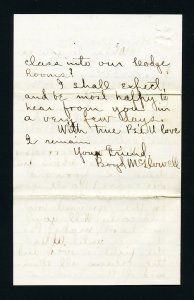 class into our Lodge
Rooms?
I shall expect,
and be most happy to
hear from you in
a very few days.
With true love
I remain
Your Friend,
Boyd